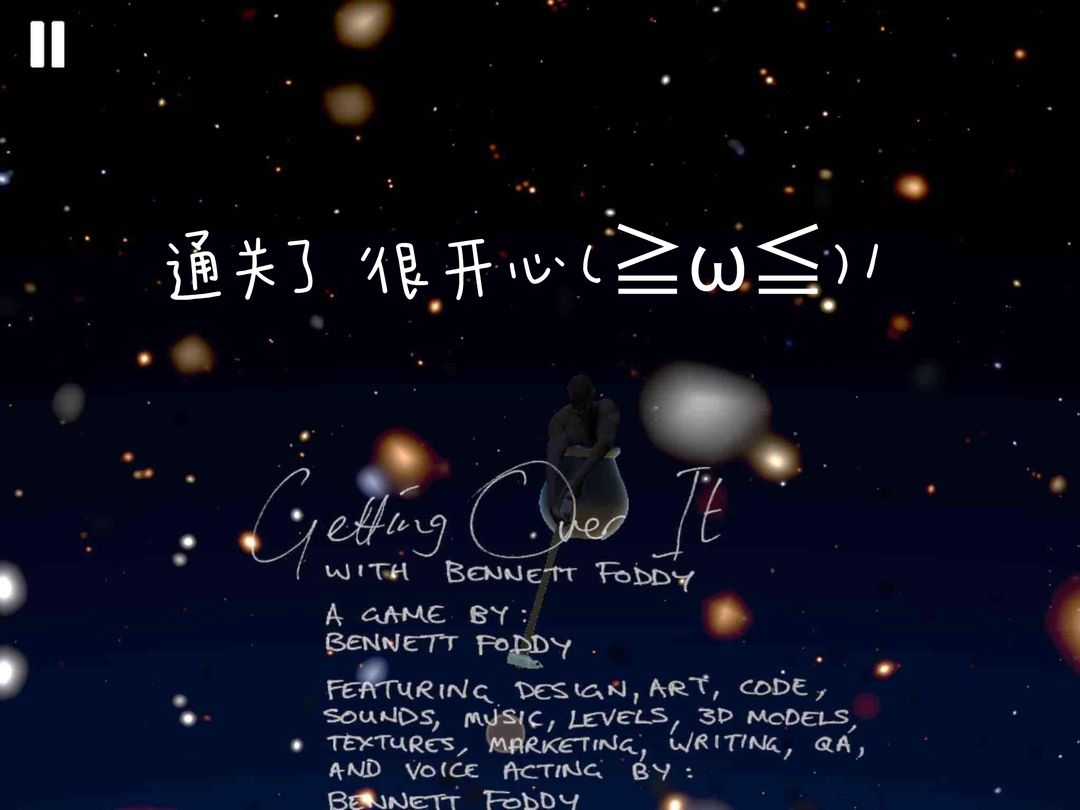 通关了 很开心(≧ω≦)/
Getting Over It
WITH BENNETT FODDY
A GAME BY:
BENNETT FODDY
FEATURING DESIGN, ART, CODE,
SOUNDS, MUSIC, LEVELS, 3D MODELS,
TEXTURES, MARKETING, WRITING, QA,
AND VOICE ACTING BY:
BENNETT FODDY